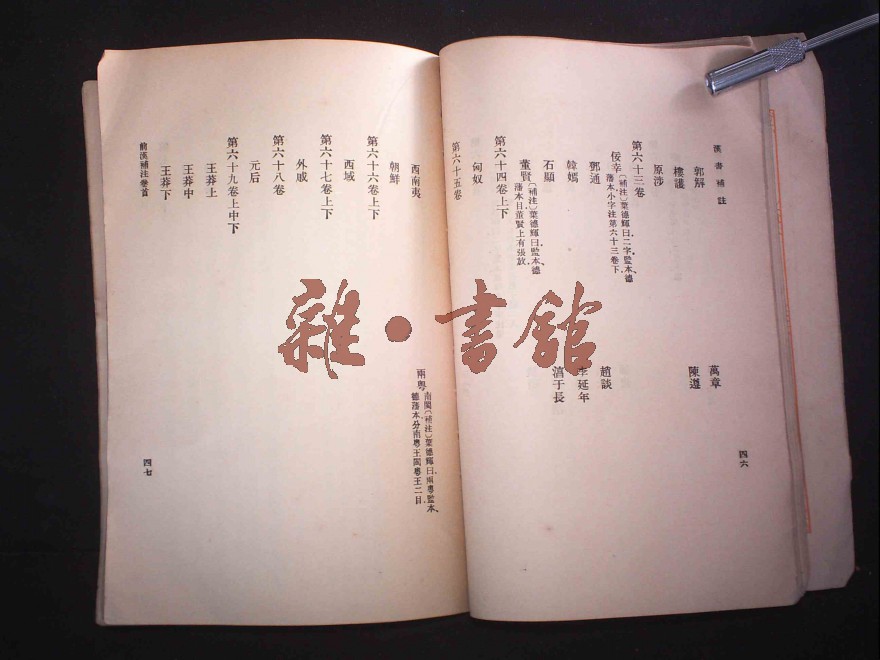 漢書補註
郭解
萬章
樓護
陳遵
原涉
第六十三卷
佞幸〔補注〕葉德輝曰二字監本、德
藩本小字注第六十三卷下、
鄧通
趙談
韓嫣
李延年
石顯
淳于長
董賢〔補注〕葉德輝曰監本、德
藩本目董賢上有張放、
第六十四卷上下
匈奴
第六十五卷
四六
西南夷
兩粵南閩〔補注〕葉德輝曰兩粵監本、
德藩本分南粵王閩粵王二目、
朝鮮
第六十六卷上下
西域
第六十七卷上下
外戚
第六十八卷
元后
第六十九卷上中下
王莽上
王莽中
王莽下
前漢補注卷首
四七
雜·書館